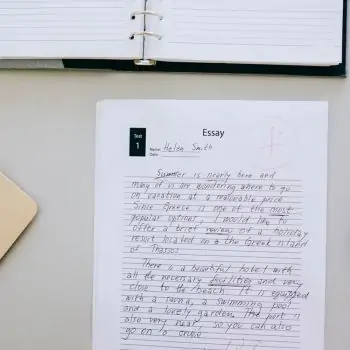 Test
1
Essay
Name: Helen Smith
Date:
Summer is nearly here and
many of us are wondering where to go
on vacation at a reasonable price.
Since Greece is one of the most
popular options, I would like to
offer a brief review of a holiday
resort located on a the Greek island
of Thassos.
There is a beautiful hotel with
all the necessary facilities and very
close to the beach. It is equipped
with a sauna, a swimming pool
and a lovely garden. The port is
also very near, so you can also
go on a cruise